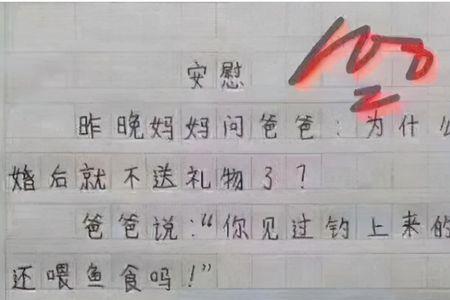 安慰
100
昨晚妈妈问爸爸:为什么
婚后就不送礼物了?
爸爸说:“你见过钓上来的
还喂鱼食吗!”